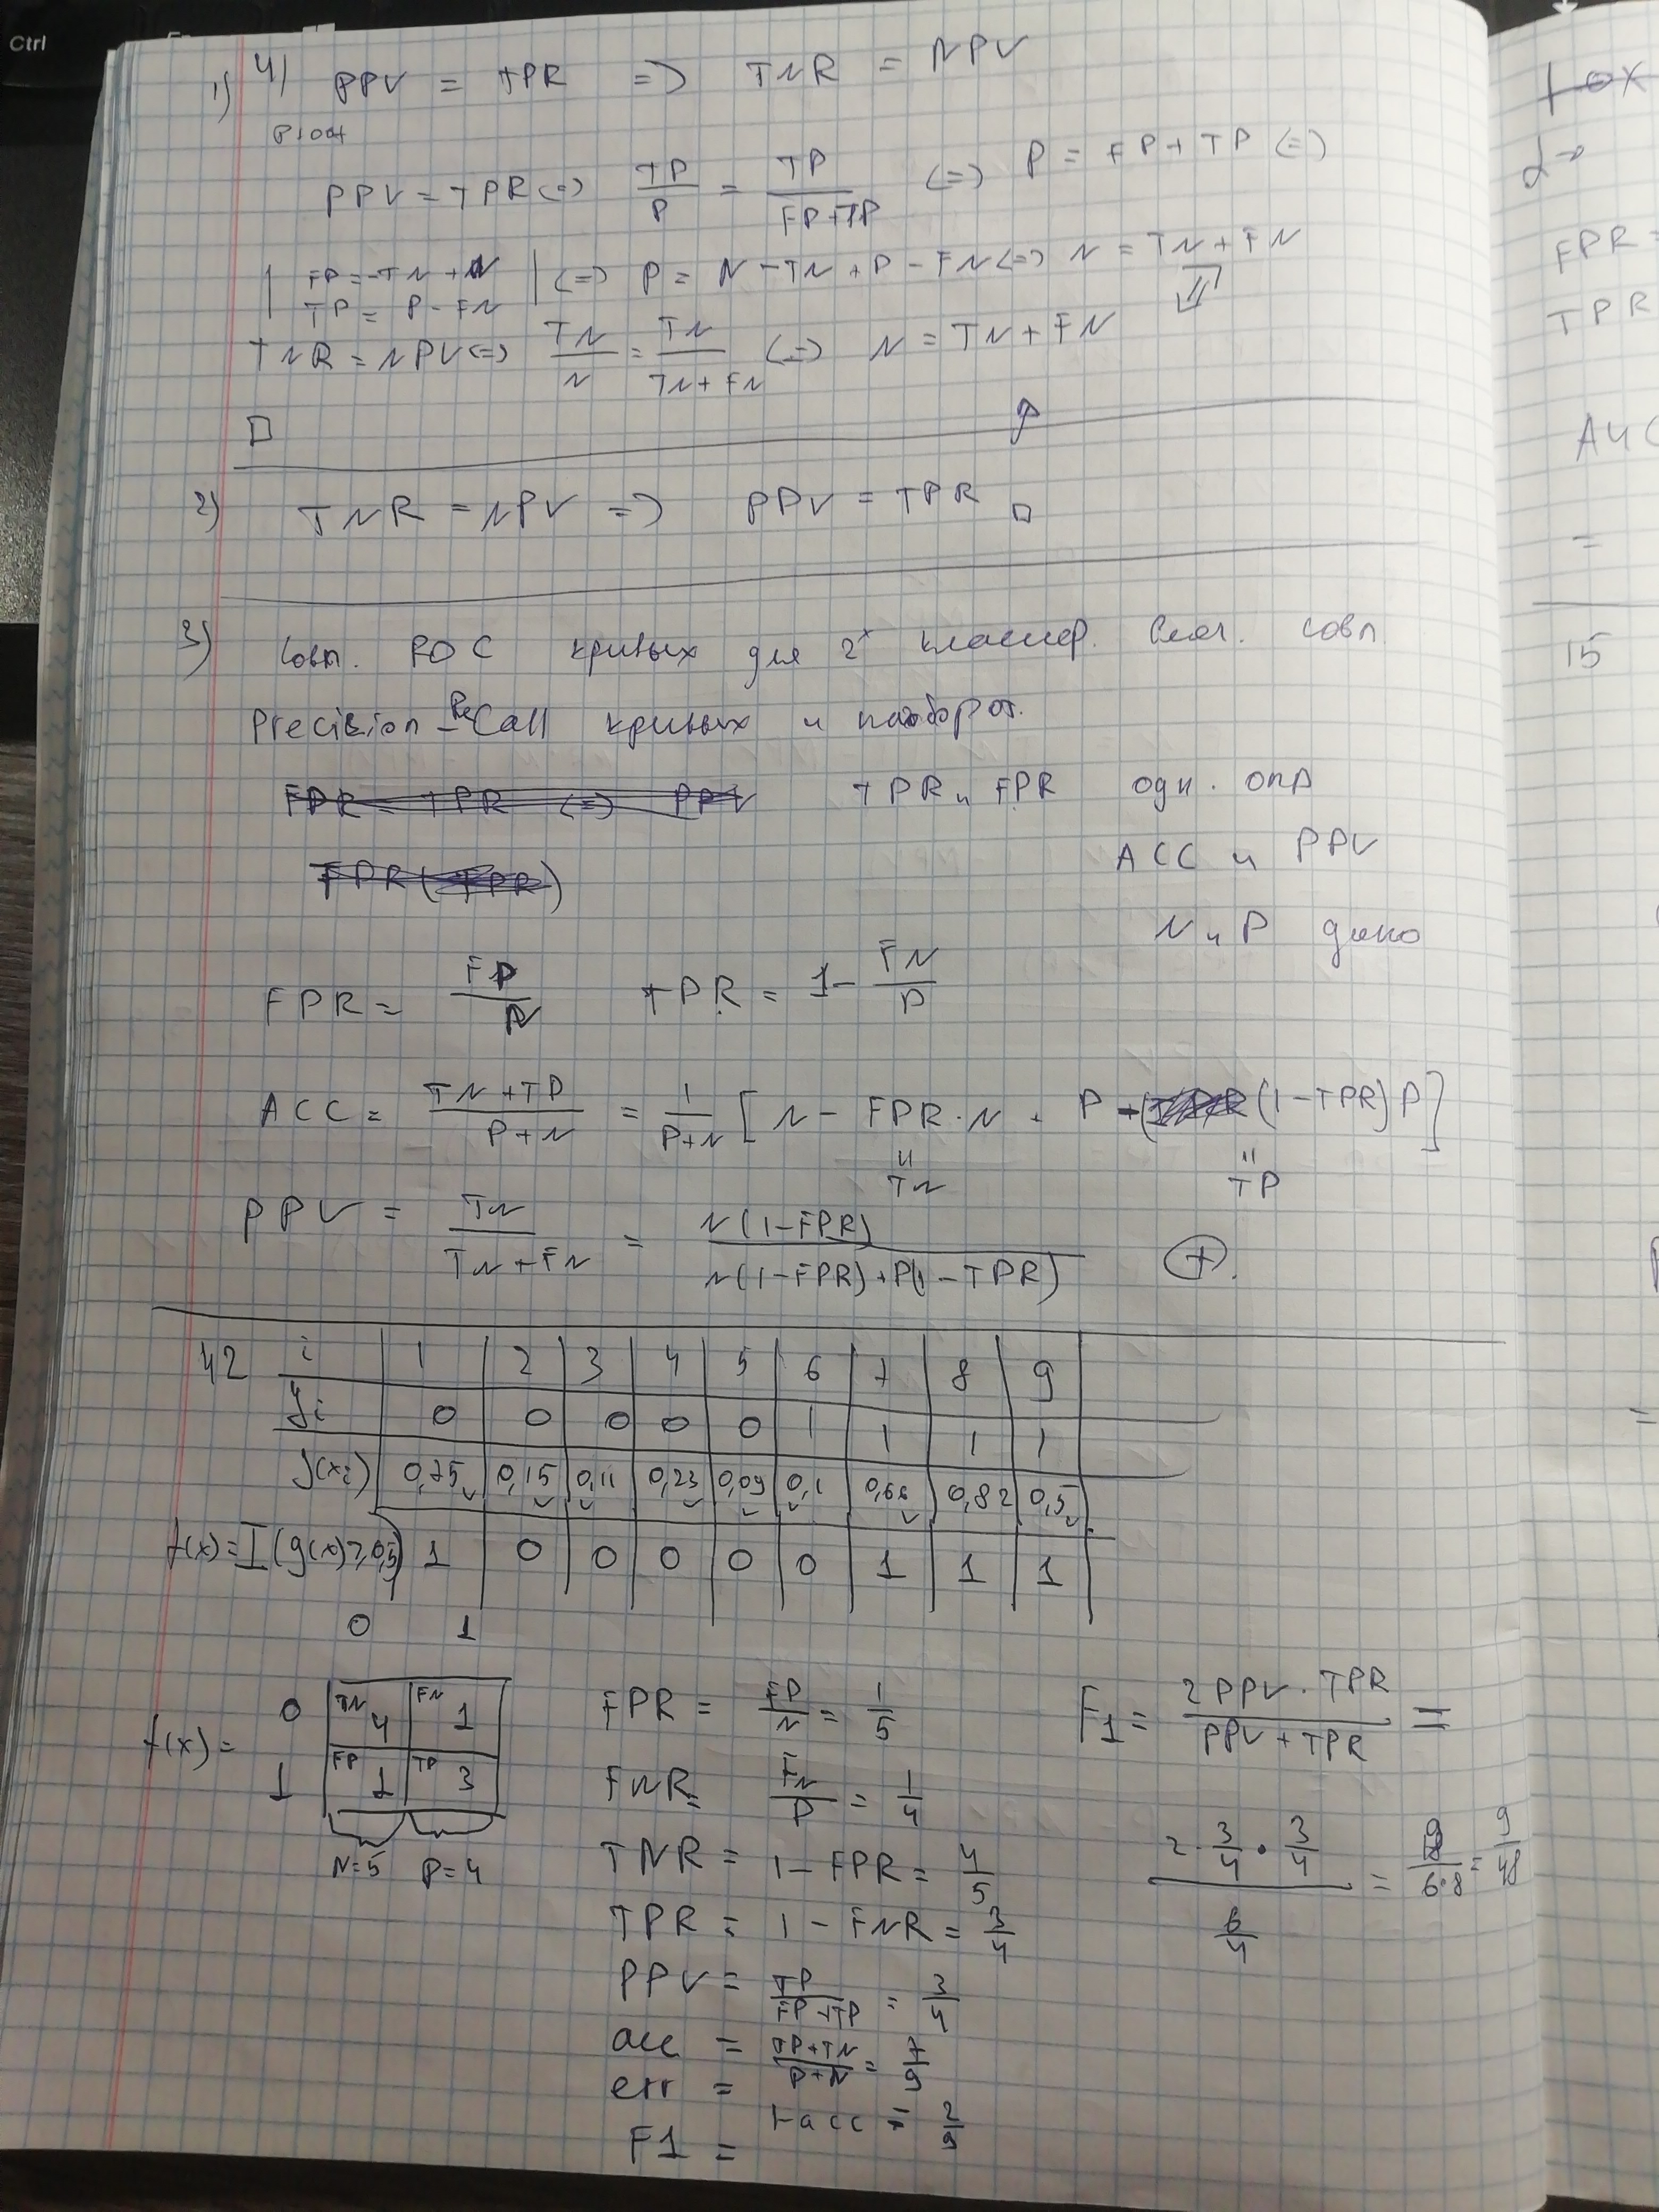 Ctrl
1) 4) PPV = TPR => TNR = NPV
PPV = TPR <=> TP/P = TP/(FP+TP) <=> P = FP + TP <=>
| FP = -TN + N
TP = P - FN | <=> P = N - TN + P - FN <=> N = TN + FN
TNR = NPV <=> TN/N = TN/(TN+FN) <=> N = TN + FN
□
2) TNR = NPV => PPV = TPR □
3) Совп. ROC кривых для 2х классиф. совп.
Precision-Recall кривых и наоборот.
FPR = TPR <=> PPV TPR и FPR одн. опр
FPR(TPR) ACC и PPV
N и P дано
FPR = FP/N TPR = 1 - FN/P
ACC = (TN+TP)/(P+N) = 1/(P+N) [N - FPR·N + P - (1-TPR)P]
= TN = TP
PPV = TN/(TN+FN) = N(1-FPR)/(N(1-FPR)+P(1-TPR)) (+).
42 i 1 2 3 4 5 6 7 8 9
yi 0 0 0 0 0 1 1 1 1
g(xi) 0,75 0,15 0,11 0,23 0,09 0,1 0,66 0,82 0,5
f(x) = I(g(x)≥0,5) 1 0 0 0 0 0 1 1 1
0 1
f(x) = 0 TN 4 FN 1
1 FP 1 TP 3
N=5 P=4
FPR = FP/N = 1/5
FNR = FN/P = 1/4
TNR = 1 - FPR = 4/5
TPR = 1 - FNR = 3/4
PPV = TP/(FP+TP) = 3/4
acc = (TP+TN)/(P+N) = 7/9
err = 1-acc = 2/9
F1 =
F1 = 2PPV·TPR/(PPV+TPR) =
(2·3/4·3/4)/(6/4) = 9/(6·8) = 9/48
FPR =
TPR
=
15
=